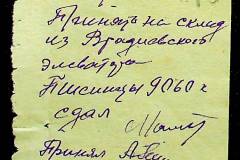 Принять на склад
из Врадиевского
элеватора
Пшеницы 9060 г
сдал
Принял